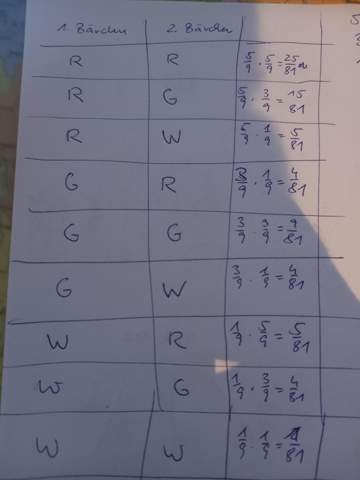 1. Bärchen 2. Bärchen
R R 5/9 · 5/9 = 25/81
R G 5/9 · 3/9 = 15/81
R W 5/9 · 1/9 = 5/81
G R 3/9 · 1/9 = 4/81
G G 3/9 · 3/9 = 9/81
G W 3/9 · 1/9 = 4/81
W R 1/9 · 5/9 = 5/81
W G 1/9 · 3/9 = 4/81
W W 1/9 · 1/9 = 1/81